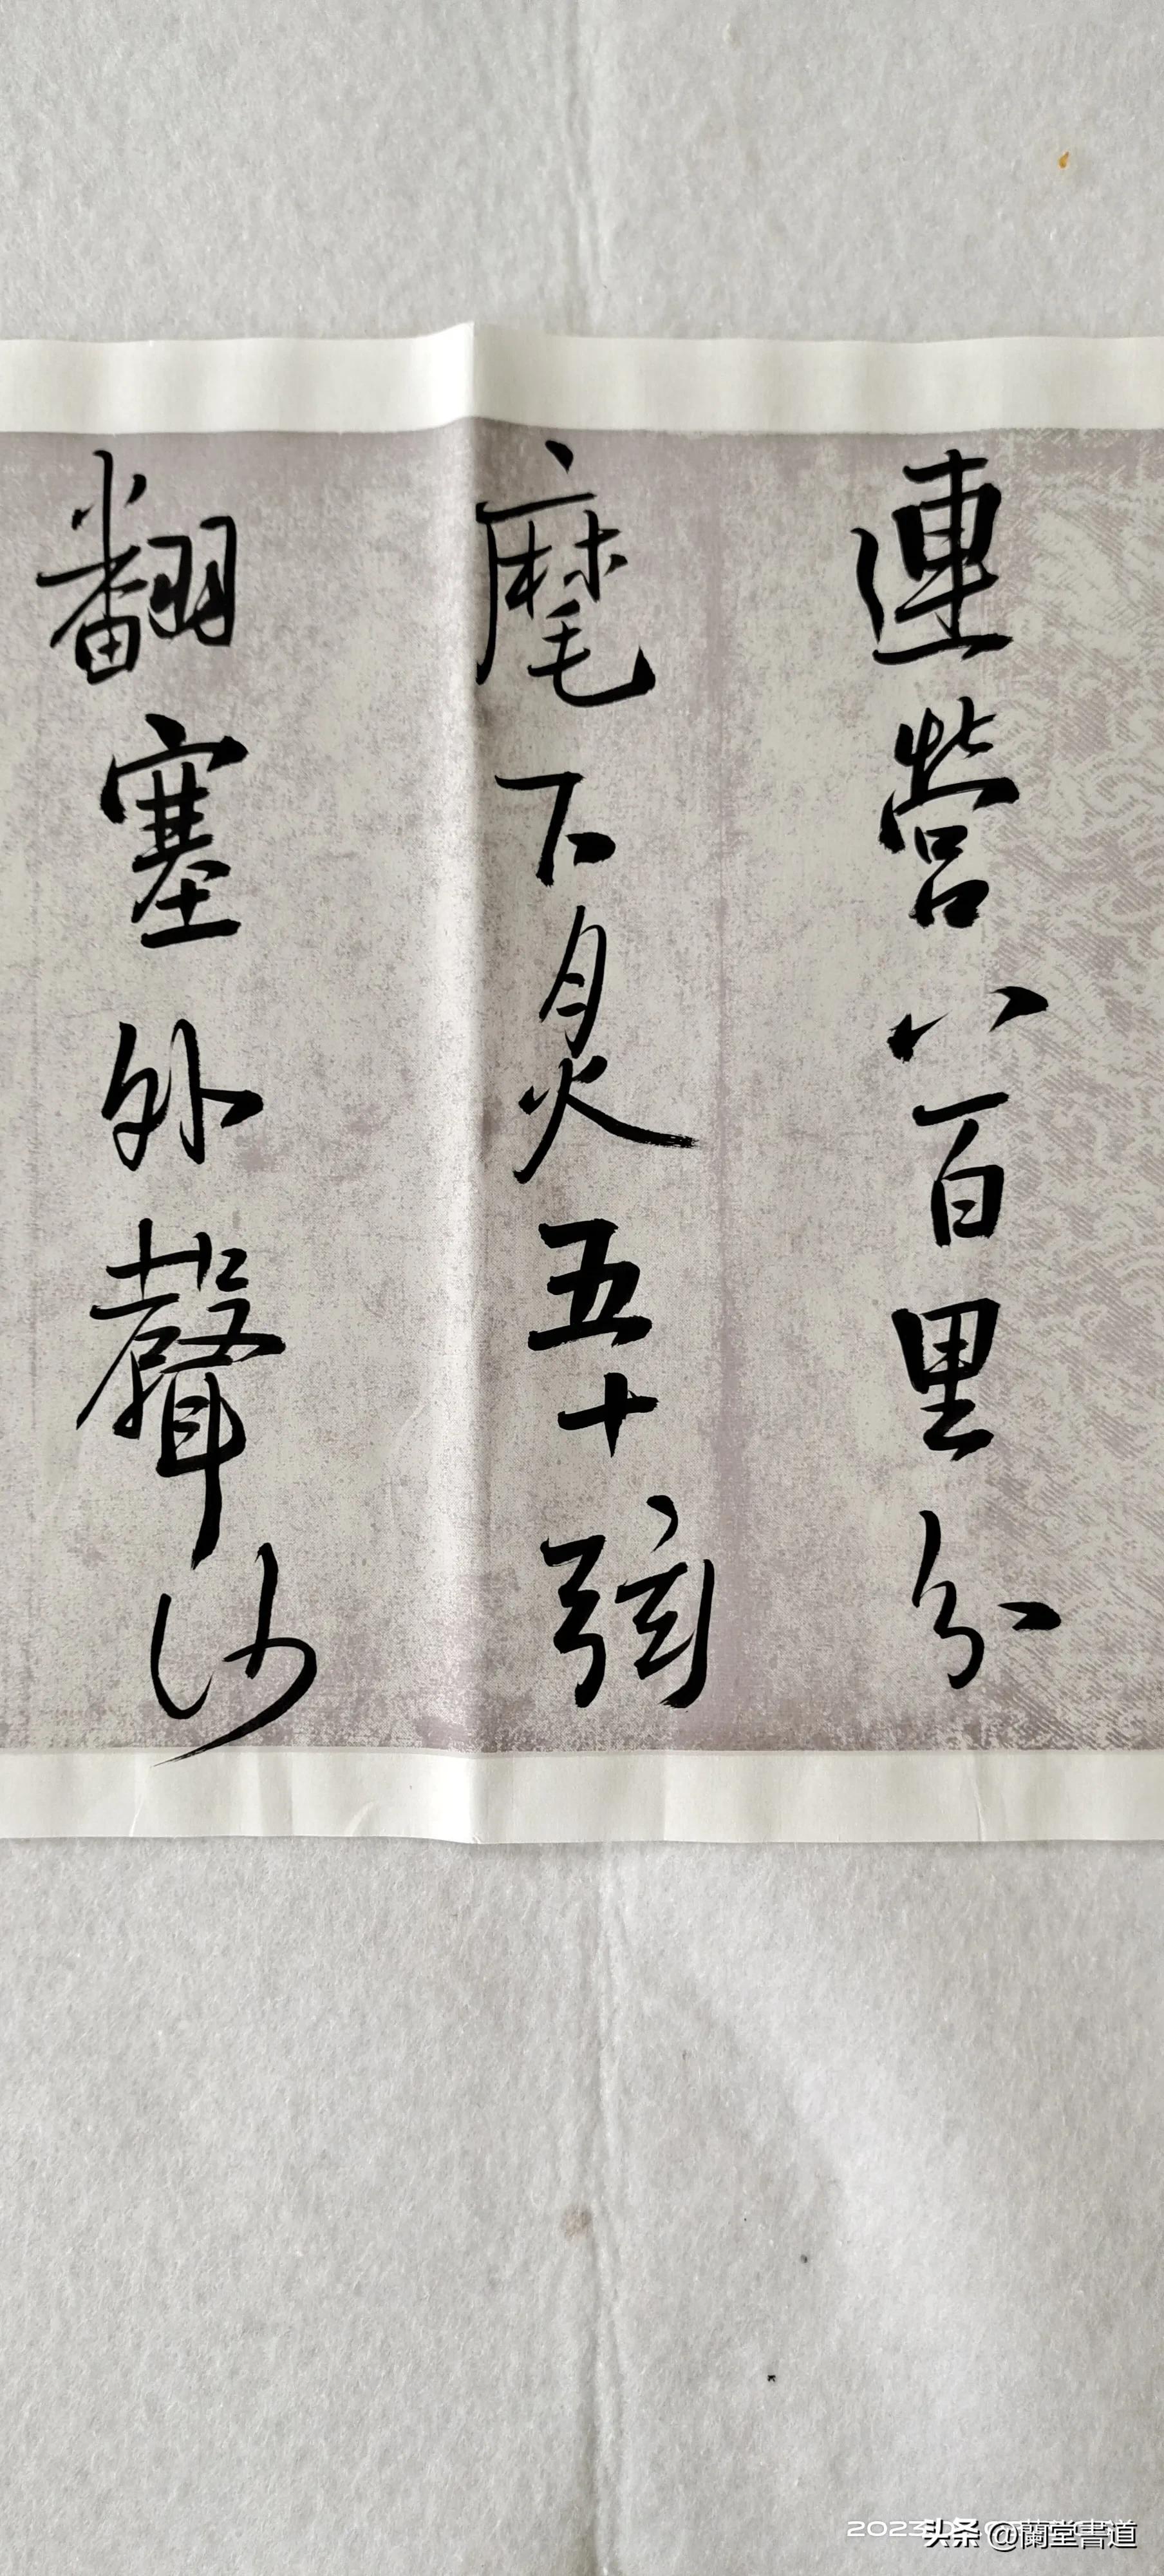 連營八百里分
麾下炙五十弦
翻塞外聲沙
头条 @蘭堂書道